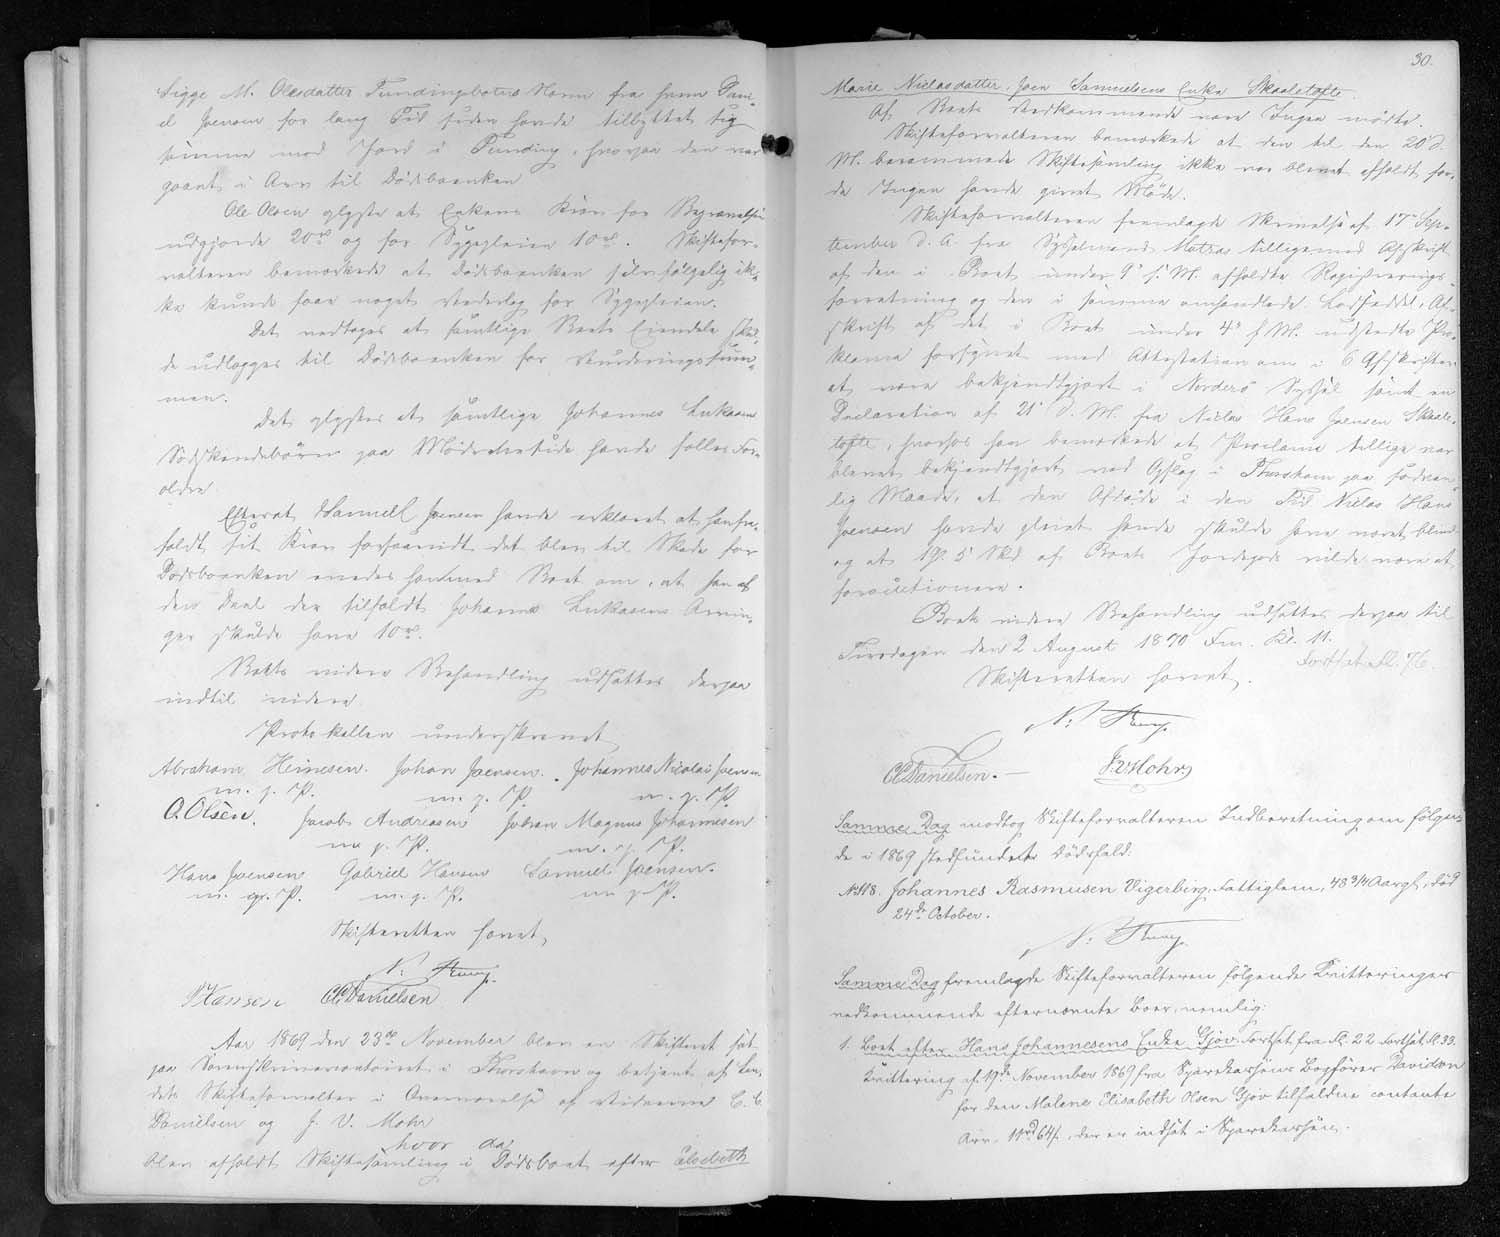 Sigge M. Olesdatter Fundingsboters Navn fra hvem Dani-
el Joensen for lang Tid siden havde tilbyttet sig
samme mod Jord i Funding, hvorpaa den var
gaaet i Arv til Dødsboenken
Ole Olsen oplyste at Enkens Krav for Begravelsen
udgjorde 20 rd og for Sygepleien 10 rd. Skiftefor-
valteren bemærkede at Dødsboenken selvfølgelig ik-
ke kunde faae noget Vederlag for Sygepleien.
Det vedtoges at samtlige Boets Eiendele skul-
de udlægges til Dødsboenken for Vurderingssum-
men.
Det oplystes at samtlige Johannes Lukasens
Sødskendebørn paa Mødrene Side havde fælles For-
ældre
Efterat Samuel Joensen havde erklæret at han fra-
faldt sit Krav forsaavidt det blev til Skade for
Dødsboenken enedes han med Boet om, at han af
den Deel der tilfaldt Johannes Lukasens Arvin-
ger skulde have 10 rd.
Boets videre Behandling udsattes derpaa
indtil videre
Protokollen underskrevet
Abraham Heinesen. Johan Joensen. Johannes Nicolai Joensen
m. p. P. m. p. P. m. p. P.
O. Olsen. Jacob Andreasen Johan Magnus Johannesen
m. p. P. m. p. P.
Hans Joensen Gabriel Hansen Samuel Joensen.
m. p. P. m. p. P. m. p. P.
Skifteretten hævet
N:
P Hansen CC Danielsen
Aar 1869 den 23de November blev en Skifteret sat
paa Sorenskrivercontoiret i Thorshavn og betjent af Lan-
dets Skifteforvalter i Overværelse af Vidnerne C. C.
Danielsen og J. V. Mohr
hvor da
blev afholdt Skiftesamling i Dødsboet efter Elsebeth
30.
Marie Niclasdatter, Joen Samuelsens Enke Skaaletofte.
Af Boets Vedkommende vare Ingen mødte.
Skifteforvalteren bemærkede at den til den 20 d.
M. berammede Skiftesamling ikke var blevet afholdt for-
di Ingen havde givet Møde.
Skifteforvalteren fremlagde Skrivelse af 17de Sep-
tember d. A. fra Sysselmand Matras tilligemed Afskrift
af den i Boet under 9 f. M. afholdte Registrerings-
forretning og den i samme omhandlede Lodseddel, Af-
skrift af det i Boet under 4 f M. udstedte Pro-
klama forsynet med Attestation om i 6 Afskrifter
at være bekjendtgjort i Norderø Syssel samt en
Declaration af 21 d. M. fra Niclas Hans Joensen Skaale-
tofte, hvorhos han bemærkede at Proclama tillige var
blevet bekjendtgjort ved Opslag i Thorshavn paa sædvan-
lig Maade, at den Afdøde i den Tid Niclas Hans
Joensen havde pleiet hende skulde have været blind
og at 1 G. 5 Skd af Boets Jordegods vilde være at
forauctionere.
Boets videre Behandling udsattes derpaa til
Tirsdagen den 2 August 1870 Fm. Kl. 11.
Fortsat Fl. 76.
Skifteretten hævet.
N:
CC Danielsen. J. V. Mohr.
Samme Dag modtog Skifteforvalteren Indberetning om følgen-
de i 1869 stedfundete Dødsfald:
No 118. Johannes Rasmusen Vigerbirg, Fattiglem, 48 3/4 Aar gl., død
24de October.
N:
Samme Dag fremlagde Skifteforvalteren følgende Kvitteringer
vedkommende efternævnte Boer, nemlig:
1. Boet efter Hans Johannesens Enke Gjov Fortsat fra Fl. 22 Fortsat Fl. 33.
Kvittering af 19de November 1869 fra Sparekassens Bogfører Davidsen
for den Malene Elisabeth Olsen Gjov tilfaldne contante
Arv, 11 rd 64 s., der er indsat i Sparekassen.